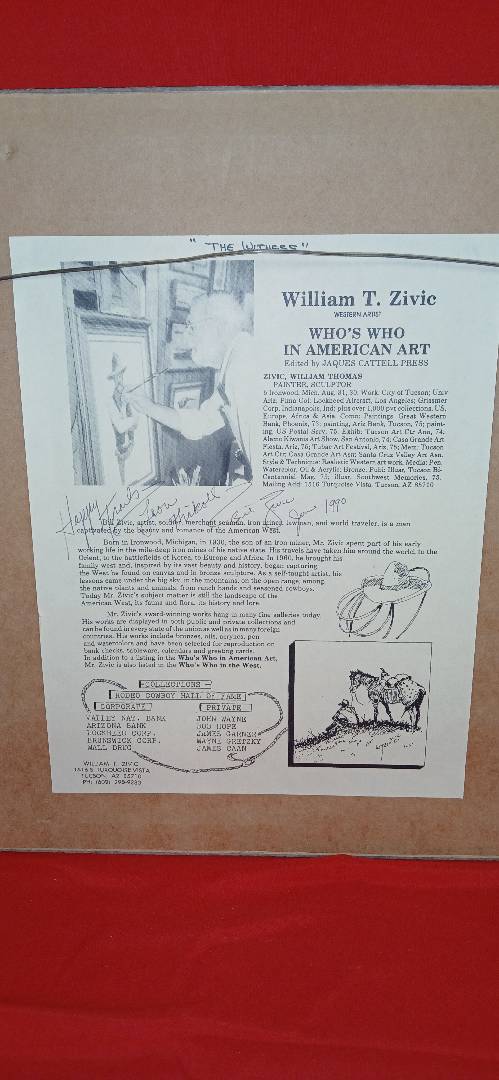 "THE WITNESS"
William T. Zivic
WESTERN ARTIST
WHO'S WHO
IN AMERICAN ART
Edited by JAQUES CATTELL PRESS
ZIVIC, WILLIAM THOMAS
PAINTER, SCULPTOR
b Ironwood, Mich, Aug. 31, 30. Work: City of Tucson; Univ
Ariz; Pima Col; Lockheed Aircraft, Los Angeles; Grissmer
Corp, Indianapolis, Ind; plus over 1,000 pvt collections, US,
Europe, Africa & Asia. Comn: Paintings, Great Western
Bank, Phoenix, 73; painting, Ariz Bank, Tucson, 75; paint-
ing, US Postal Serv, 75. Exhib: Tucson Art Ctr Ann, 74;
Alamo Kiwanis Art Show, San Antonio, 74; Casa Grande Art
Fiesta, Ariz, 76; Tubac Art Festival, Ariz, 78; Mem: Tucson
Art Ctr; Casa Grande Art Asn; Santa Cruz Valley Art Asn.
Style & Technique: Realistic Western art work. Media: Pen,
Watercolor, Oil & Acrylic; Bronze. Publ: Illusr, Tucson Bi-
Centennial Mag, 75; illusr, Southwest Memories, 75.
Mailing Add: 1516 Turquoise Vista, Tucson, AZ 85710
Happy Trails
Leon
Bill Zivic
June 1990
Bill Zivic, artist, soldier, merchant seaman, iron miner, lawman, and world traveler, is a man
captivated by the beauty and romance of the American West.
Born in Ironwood, Michigan, in 1930, the son of an iron miner, Mr. Zivic spent part of his early
working life in the mile-deep iron mines of his native state. His travels have taken him around the world, to the
Orient, to the battlefields of Korea, to Europe and Africa. In 1960, he brought his
family west and, inspired by its vast beauty and history, began capturing
the West he found on canvas and in bronze sculpture. As a self-taught artist, his
lessons came under the big sky, in the mountains, on the open range, among
the native plants and animals, from ranch hands and seasoned cowboys.
Today Mr. Zivic's subject matter is still the landscape of the
American West, its fauna and flora, its history and lore.
Mr. Zivic's award-winning works hang in many fine galleries today.
His works are displayed in both public and private collections and
can be found in every state of the union as well as in many foreign
countries. His works include bronzes, oils, acrylics, pen
and watercolors and have been selected for reproduction on
bank checks, tableware, calendars and greeting cards.
In addition to a listing in the Who's Who in American Art,
Mr. Zivic is also listed in the Who's Who in the West.
-COLLECTIONS-
RODEO COWBOY HALL OF FAME
CORPORATE
VALLEY NAT. BANK
ARIZONA BANK
LOCKHEED CORP.
BRUNSWICK CORP.
WALL DRUG
PRIVATE
JOHN WAYNE
BOB HOPE
JAMES GARNER
WAYNE GRETZKY
JAMES CAAN
WILLIAM T. ZIVIC
1516 S TURQUOISE VISTA
TUCSON AZ 85710